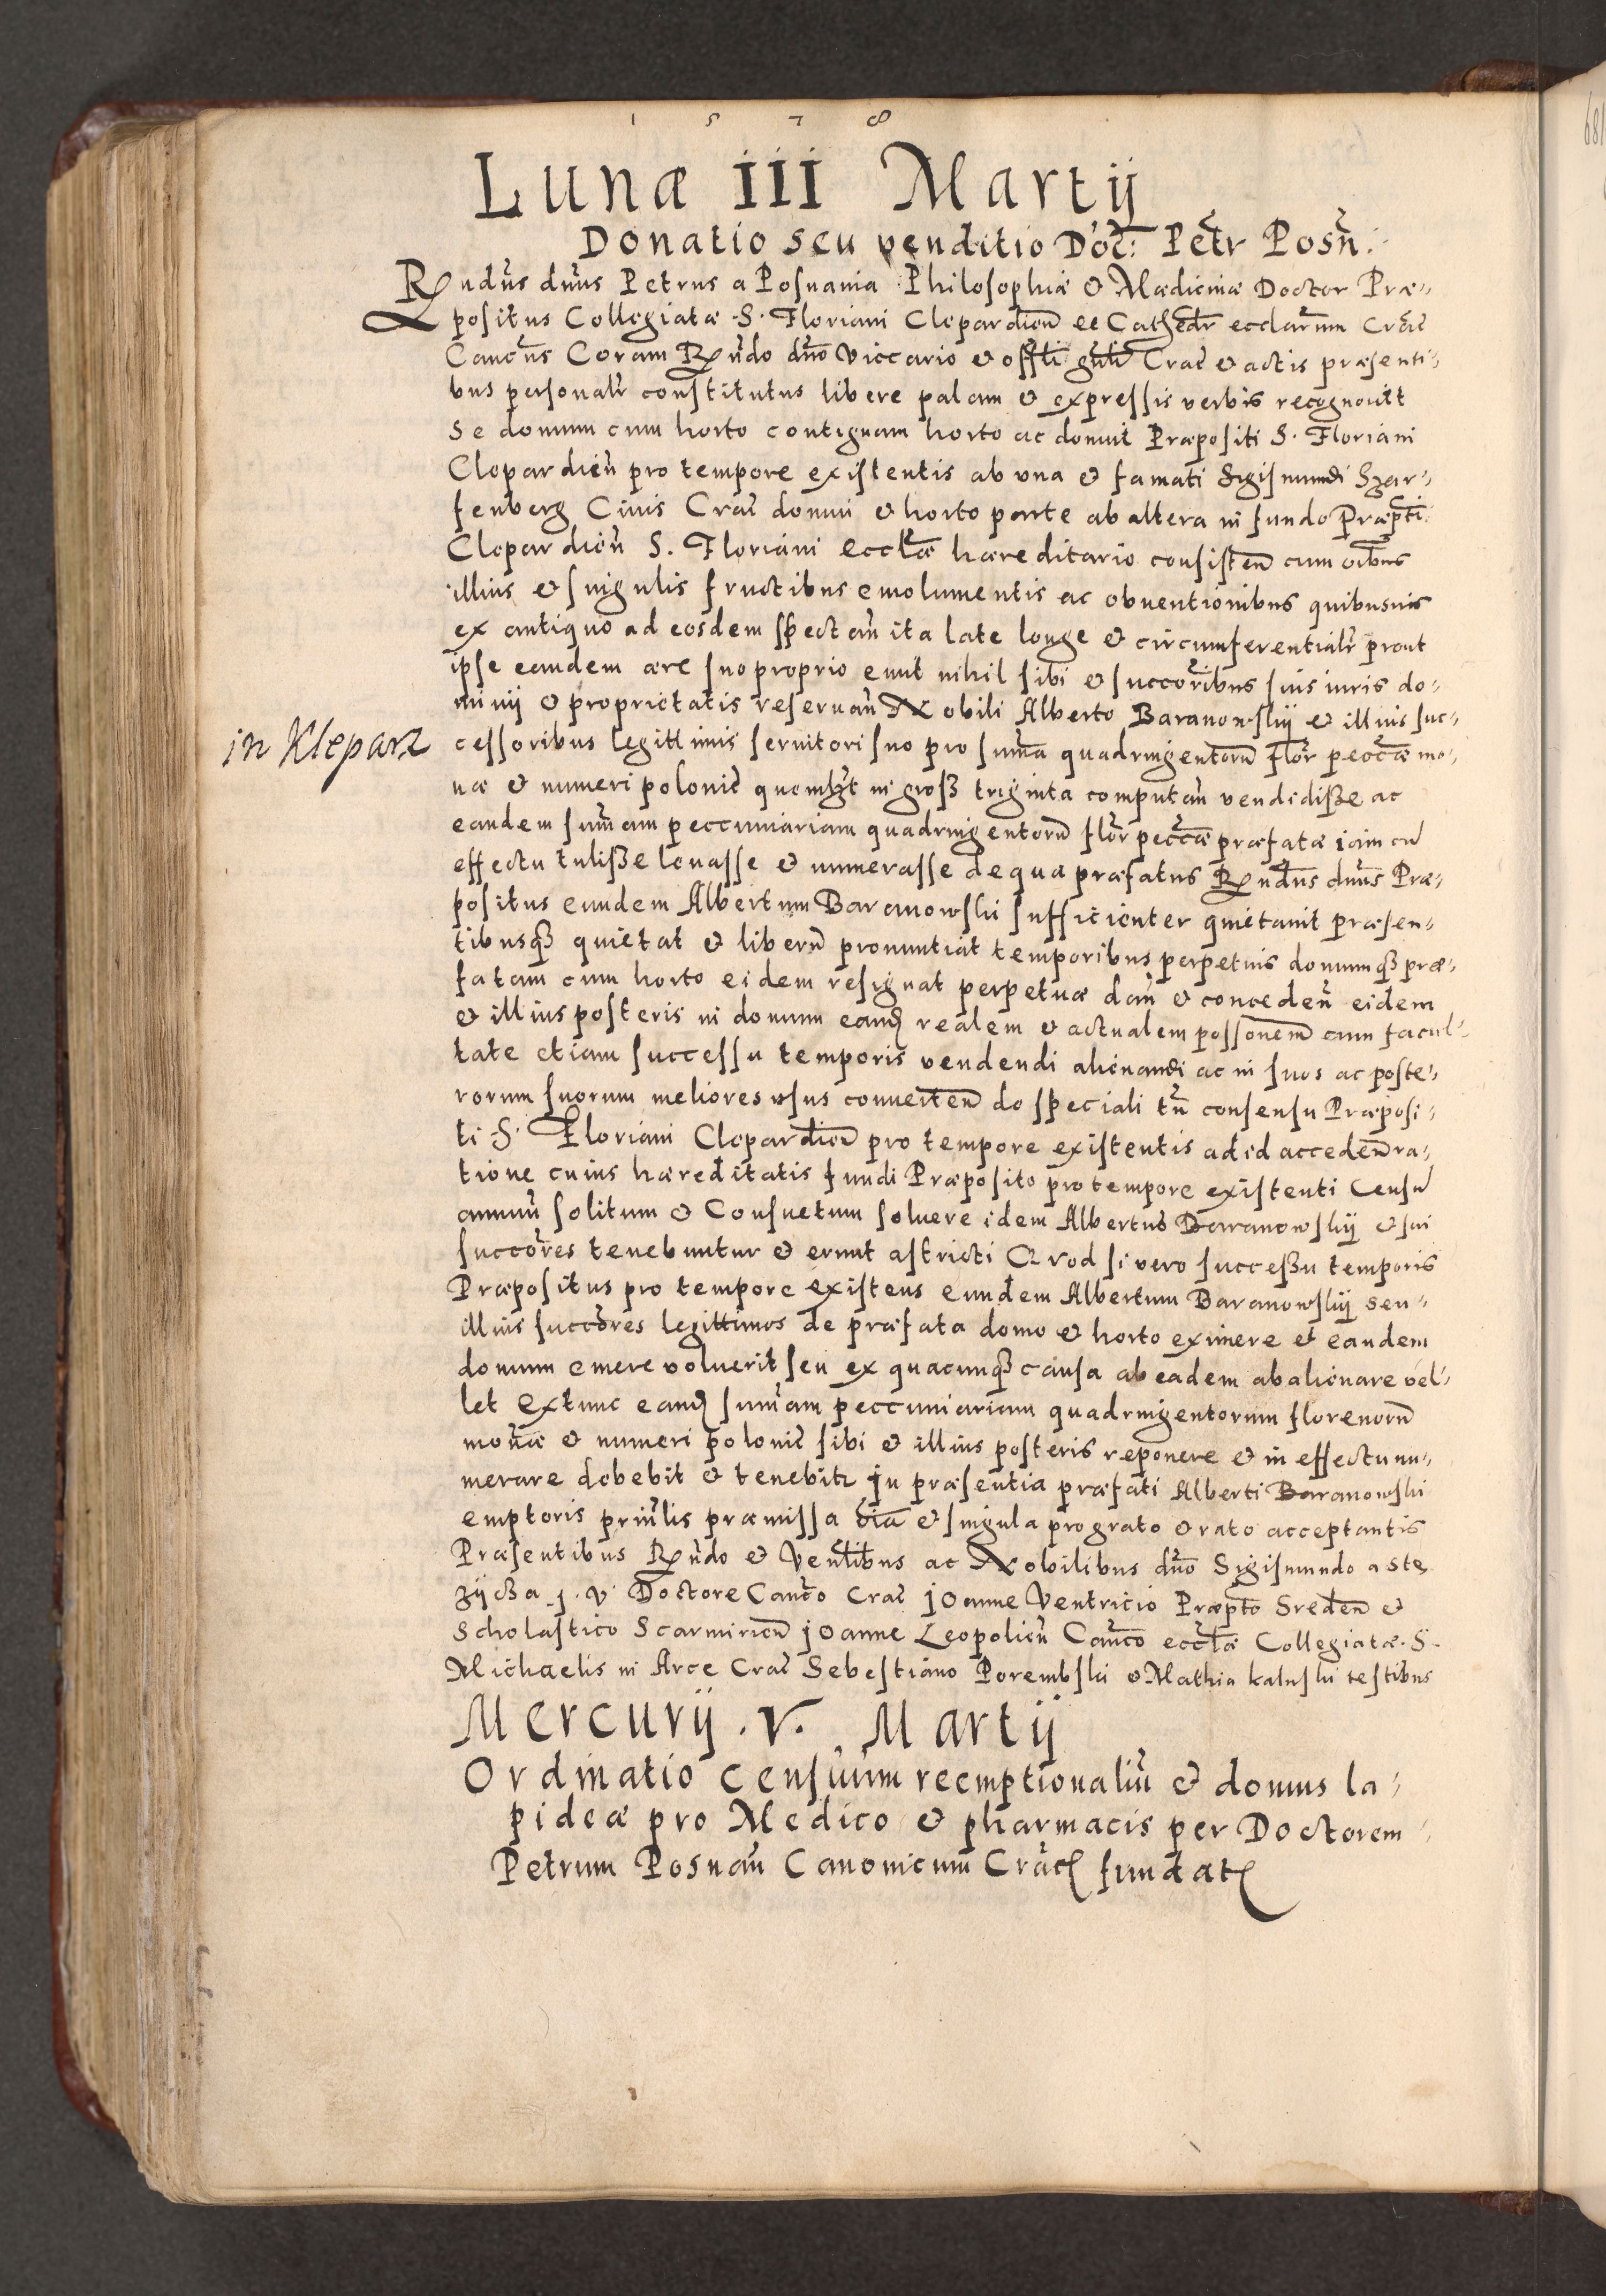 1 5 7 8
Lunæ III Martij
Donatio seu venditio Doc: Petr Posn:
Rndus dnus Petrus a Posnania Philosophiæ & Mædicinæ Doctor Præ-
positus Collegiatæ S. Floriani Clepardien et Cathedr ecclarum Crac
Cancus Coram Rndo dno Viccario & offli gnli Crac & actis præsenti-
bus personalr constitutus libere palam & expressis verbis recognouit
Se domum cum horto contiguam horto ac domui Præpositi S. Floriani
Clepardien pro tempore existentis ab una & famati Sigismundi Szar-
fenberg Ciuis Crac domui & horto parte ab altera in fundo Præpti
Clepardien S. Floriani Ecclæ hæreditario consisten cum oibus
illius & singulis fructibus emolumentis ac obuentionibus quibusuis
ex antiquo ad eosdem spectan ita late longe & circumferentialr prout
ipse eandem ære suo proprio emit nihil sibi & succoribus suis iuris do-
minij & proprietatis reseruan Nobili Alberto Baranowskij & illius suc-
in Kleparz
cessoribus legittimis seruitori suo pro summa quadringentorum flor peccæ mo-
næ & numeri polonic quemlzt in gross triginta computan vendidisse ac
eandem summam peccuniariam quadringentorum flor peccæ præfatæ iam cu
effectu tulisse leuasse & numerasse de qua præfatus Rndus dnus Præ-
positus eundem Albertum Baranowski sufficienter quietauit præsen-
tibusq quietat & liberu pronuntiat temporibus perpetuis domumq præ-
fatam cum horto eidem resignat perpetuæ dan & conceden eidem
& illius posteris in domum eand realem & actualem possonem cum facul-
tate etiam successu temporis vendendi alienandi ac in suos ac poste-
rorum suorum meliores vsus conuerten do speciali tn consensu Præposi-
ti S. Floriani Clepardien pro tempore existentis ad id acceden ra-
tione cuius hæreditatis fundi Præposito pro tempore existenti Censu
annuu solitum & Consuetum soluere idem Albertus Baranowskij & sui
succores tenebuntur & erunt astricti Qvod si vero successu temporis
Præpositus pro tempore existens eundem Albertum Baranowskij seu
illius succores legittimos de præfata domo & horto eximere et eandem
domum emere voluerit seu ex quacunq causa ab eadem abalienare vel-
let Extunc eand summam peccuniariam quadringentorum florenoru
monæ & numeri polonic sibi & illius posteris reponere & in effectu nu-
merare debebit & tenebitr In præsentia præfati Alberti Baranowski
emptoris prinlis præmissa oia & singula pro grato & rato acceptantis
Præsentibus Rndo & Venlibus ac Nobilibus dno Sigismundo a Stę
zijcza J. V. Doctore Canco Crac Joanne Ventricio Præpto Sreden &
Scholastico Scarmirien Joanne Leopolien Canco ecclæ Collegiatæ S.
Michaelis in Arce Crac Sebestiano Porembski & Mathia kaluski testibus
Mercurij . V. Martij
Ordinatio Censuum reemptionaliu & domus la-
pideæ pro Medico & pharmacis per Doctorem
Petrum Posnan Canonicum Crac fundat